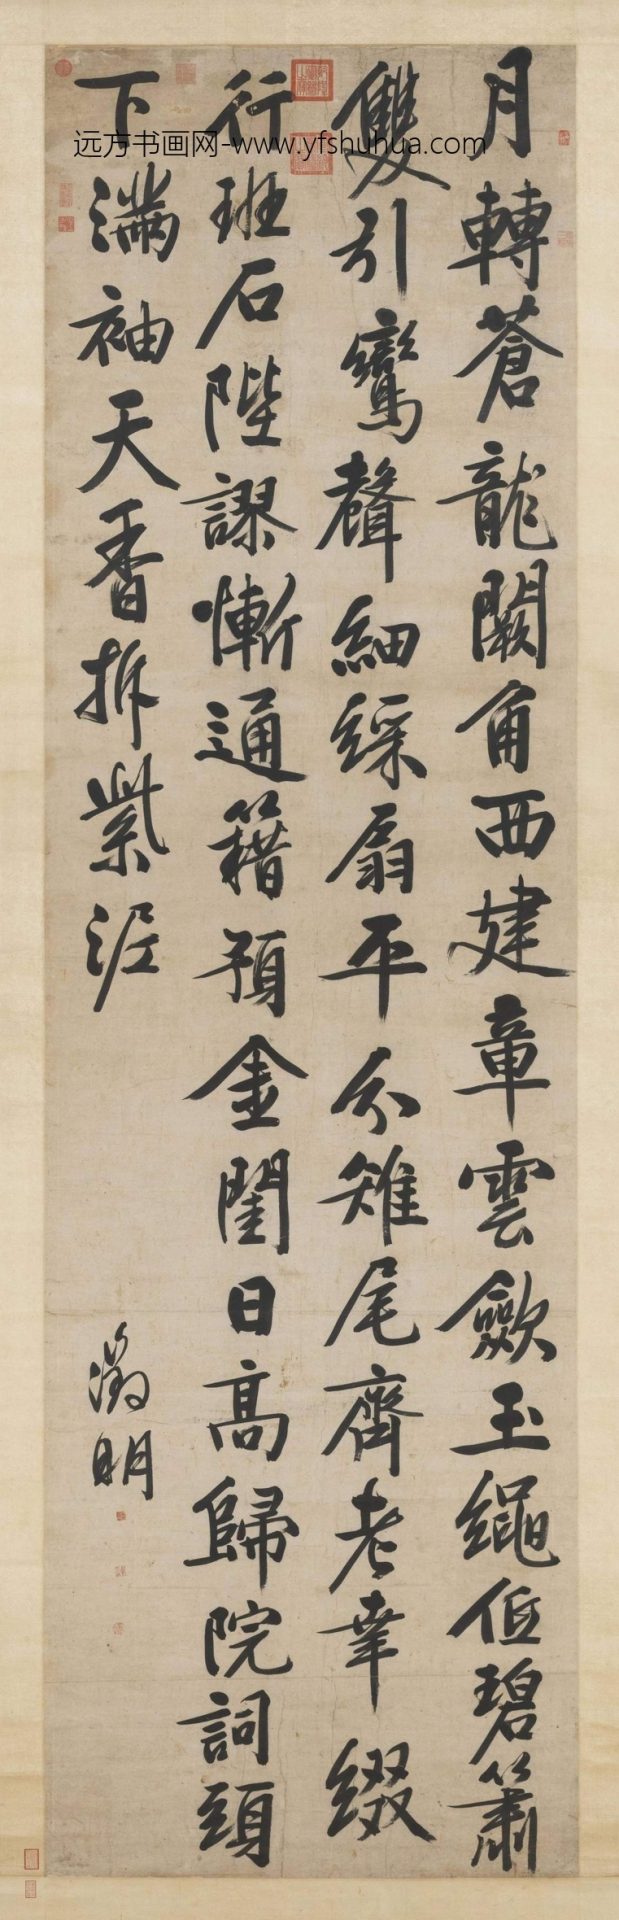 月轉蒼龍闕角西建章雲歛玉繩低碧簫
雙引鸞聲細綵扇平分雉尾齊老幸綴
行班石陛謬慚通籍預金閨日高歸院詞頭
下滿袖天香拆紫泥
徵明
远方书画网-www.yfshuhua.com